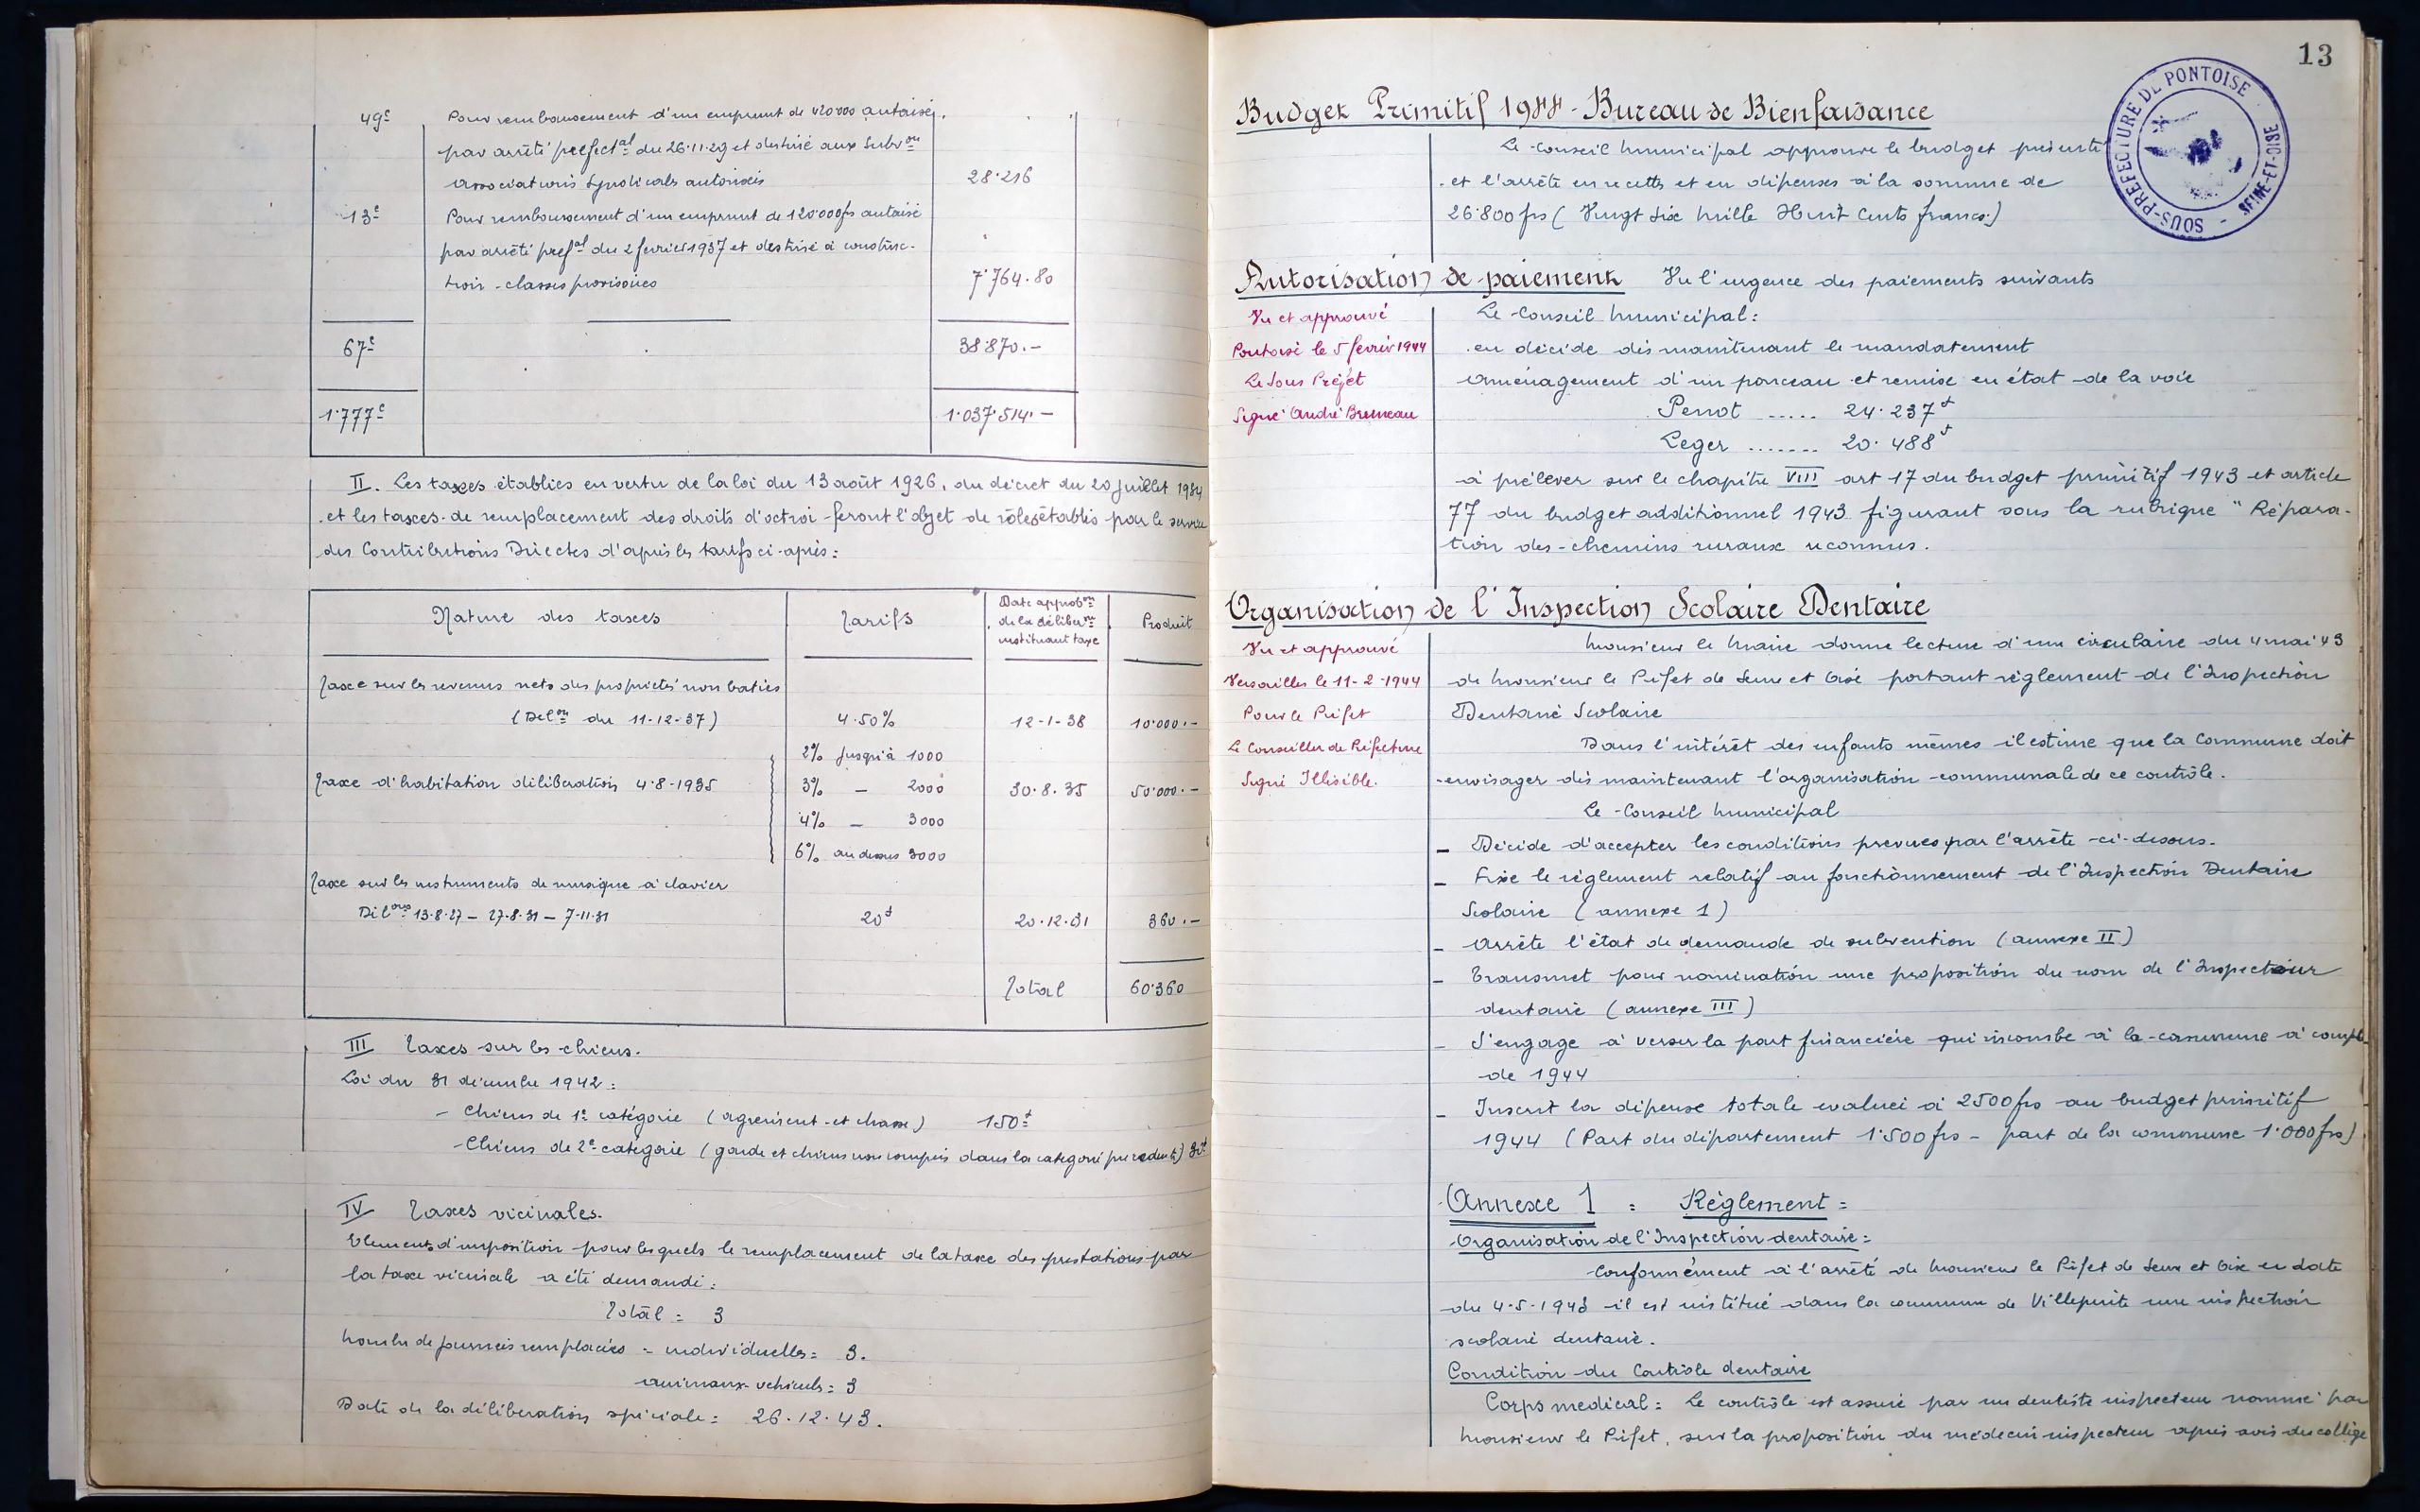 49c Pour remboursement d'un emprunt de 420000 autorisé
par arrêté prefectal du 26.11.29 et destiné aux Subvon
associations syndicales autorisées 28.216
13c Pour remboursement d'un emprunt de 120.000frs autorisé
par arrêté prefal du 2 fevrier 1937 et destiné à construc-
tion - classes provisoires 7.764.80
67c 38.870.-
1.777c 1.037.514.-
II. Les taxes établies en vertu de la loi du 13 août 1926, du décret du 20 juillet 1934
et les taxes de remplacement des droits d'octroi feront l'objet de rôles établis par le service
des Contributions Directes d'après les tarifs ci-après :
Nature des taxes Tarifs Date approbon de la déliberon instituant taxe Produit
Taxe sur les revenus nets des propriétés non baties
(Delon du 11-12-37) 4.50% 12-1-38 10.000.-
2% jusqu'à 1000
Taxe d'habitation délibération 4.8.1935 3% - 2000 30.8.35 50.000.-
4% - 3000
6% au dessus 3000
Taxe sur les instruments de musique à clavier
Délons 13.8.27 - 27.8.31 - 7-11.31 20f 20.12.31 360.-
Total 60.360
III Taxes sur les chiens.
Loi du 31 décembre 1942 :
- Chiens de 1e catégorie (agrément et chasse) 150f
- Chiens de 2e catégorie (garde et chiens non compris dans la catégorie précédente) 30f
IV Taxes vicinales.
Elements d'imposition pour lesquels le remplacement de la taxe des prestations par
la taxe vicinale a été demandé :
Total = 3
Nombre de journées remplacées = individuelles = 3.
animaux-vehicules = 3
Date de la délibération spéciale = 26.12.43.
13
SOUS-PRÉFECTURE DE PONTOISE - SEINE-ET-OISE
Budget Primitif 1944 - Bureau de Bienfaisance
Le Conseil Municipal approuve le budget présenté
et l'arrête en recettes et en dépenses à la somme de
26.800 frs (Vingt Six Mille Huit Cents francs.)
Autorisation de paiement Vu l'urgence des paiements suivants
Vu et approuvé
Pontoise le 5 fevrier 1944
Le Sous Préfet
Signé André
Le Conseil Municipal :
en décide dès maintenant le mandatement
aménagement d'un ponceau et remise en état de la voie
Perrot ..... 24.237f
Leger ....... 20.488f
à prélever sur le chapitre VIII art 17 du budget primitif 1943 et article
77 du budget additionnel 1943 figurant sous la rubrique " Répara-
tion des chemins ruraux reconnus.
Organisation de l'Inspection Scolaire Dentaire
Vu et approuvé
Versailles le 11-2-1944
Pour le Préfet
Le Conseiller de Préfecture
Signé Illisible.
Monsieur le Maire donne lecture d'une circulaire du 4 mai 43
de Monsieur le Préfet de Seine et Oise portant règlement de l'Inspection
Dentaire Scolaire
Dans l'intérêt des enfants mêmes il estime que la Commune doit
envisager dès maintenant l'organisation communale de ce contrôle.
Le Conseil Municipal
- Décide d'accepter les conditions prevues par l'arrête ci-dessus.
- Fixe le règlement relatif au fonctionnement de l'Inspection Dentaire
Scolaire (annexe 1)
- Arrête l'état de demande de subvention (annexe II)
- Transmet pour nomination une proposition du nom de l'Inspecteur
dentaire (annexe III)
- S'engage à verser la part financière qui incombe à la commune à compter
de 1944
- Inscrit la dépense totale evaluée à 2500frs au budget primitif
1944 (Part du département 1.500frs - part de la commune 1.000frs)
Annexe 1 : Règlement :
Organisation de l'Inspection dentaire :
Conformément à l'arrêté de Monsieur le Préfet de Seine et Oise en date
du 4.5.1943 il est institué dans la commune de Villepinte une inspection
scolaire dentaire.
Condition du Contrôle dentaire
Corps medical : Le contrôle est assuré par un dentiste inspecteur nommé par
Monsieur le Préfet, sur la proposition du médecin inspecteur après avis du collège